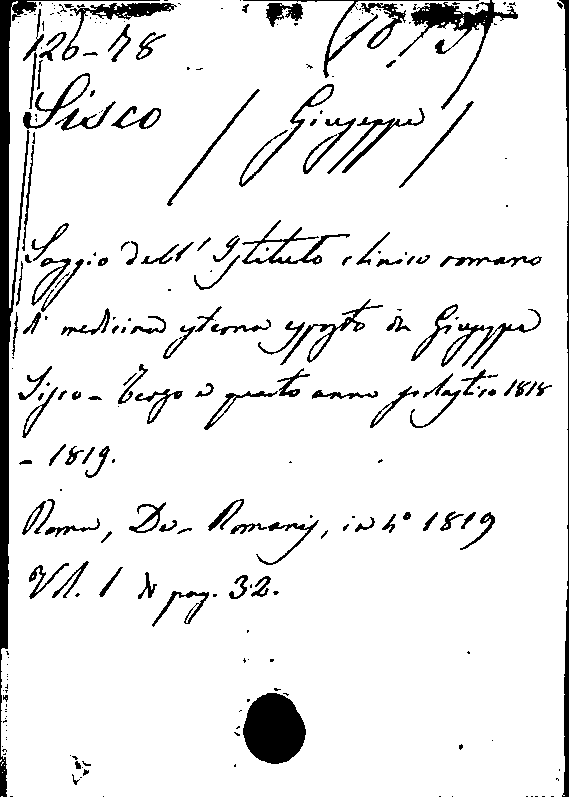 126-78 (10/5)
Sisco / Giuseppe /
Saggio dell' Istituto clinico romano
di medicina esterna esposto da Giuseppe
Sisco - Terzo e quarto anno scolastico 1818
- 1819.
Roma, De-Romanis, in 4° 1819
Vol. 1 di pag. 32.